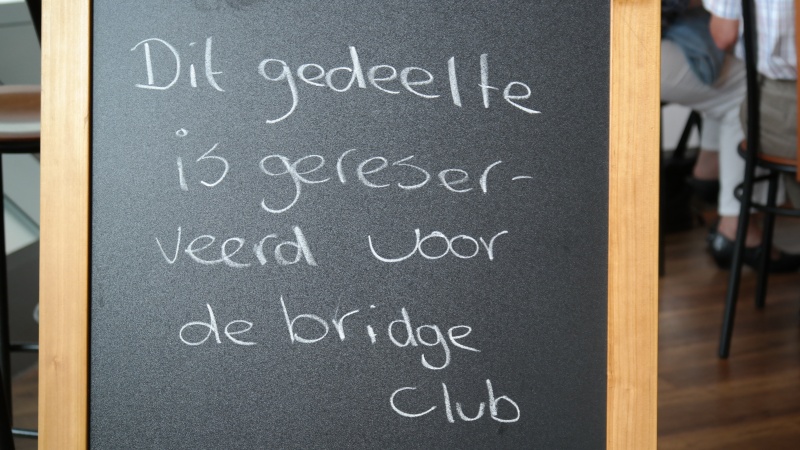 Dit gedeelte
is gereser-
veerd voor
de bridge
Club